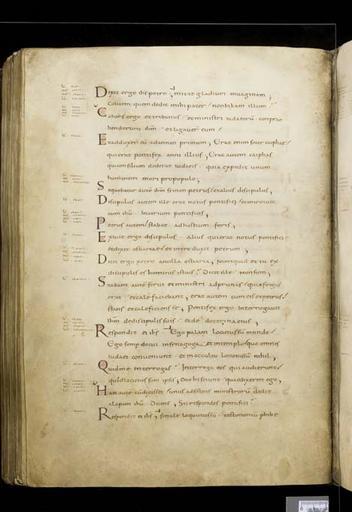 Dixit ergo ihs petro mitte gladium in uaginam,
Calicem quem dedit mihi pater non bibam illum
Cohors ergo et tribunus et ministri iudaeorū conpre
henderunt ihm et ligauer eum
Et adduxer eū ad annan primum, Erat enim socer caiphae
qui erat pontifex anni illius, Erat autem caiphas
qui consilium dederat iudaeis quia expedit unum
hominem mori pro populo,
Sequebatur autē ihm simon petrus et alius discipulus,
Discipulus autem ille erat notus pontifici et introiuit
cum ihu in atrium pontificis,
Petrus autem stabat ad hostium foris,
Exiuit ergo discipulus alius qui erat notus pontifici
et dixit ostiariae et introduxit petrum,
Dicit ergo petro ancilla ostiaria, numquid et tu ex
discipulis es hominis istius Dicit ille non sum,
Stabant autē serui et ministri ad prunas quia frigus
erat et calefiebant, erat autem cum eis et petrus
stans et calefaciens se, Pontifex ergo interrogauit
ihm de discipulis suis et de doctrina eius,
Respondit ei ihs Ego palam locutus sum mundo
Ego semper docui in synagoga et in templo quo omnes
iudaei conueniunt et in occulto locutus sū nihil,
Quid me interrogas Interroga eos qui audierunt
quid locutus sum ipsis, Ecce hi sciunt quae dixerim ego,
Haec autē cū dixisset unus adsistens ministrorū dedit
alapam ihu Dicens, Sic respondes pontifici
Respondit ei ihs si male locutus sū testimoniū perhibe